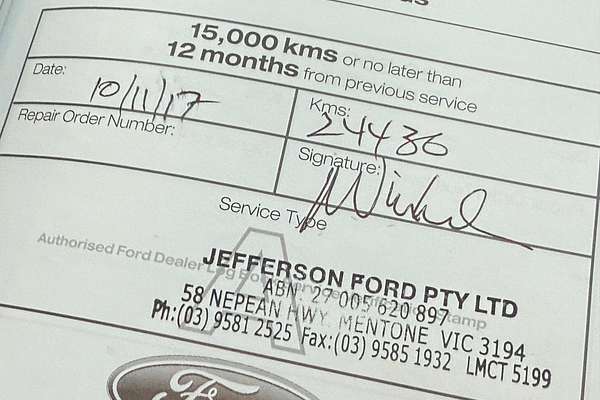 15,000 kms or no later than
12 months from previous service
Date: 10/11/17
Kms: 24436
Repair Order Number:
Signature:
Service Type
A
Authorised Ford Dealer Log Book Service Stamp
JEFFERSON FORD PTY LTD
ABN: 27 005 620 897
58 NEPEAN HWY. MENTONE VIC 3194
Ph:(03) 9581 2525 Fax:(03) 9585 1932 LMCT 5199
Ford